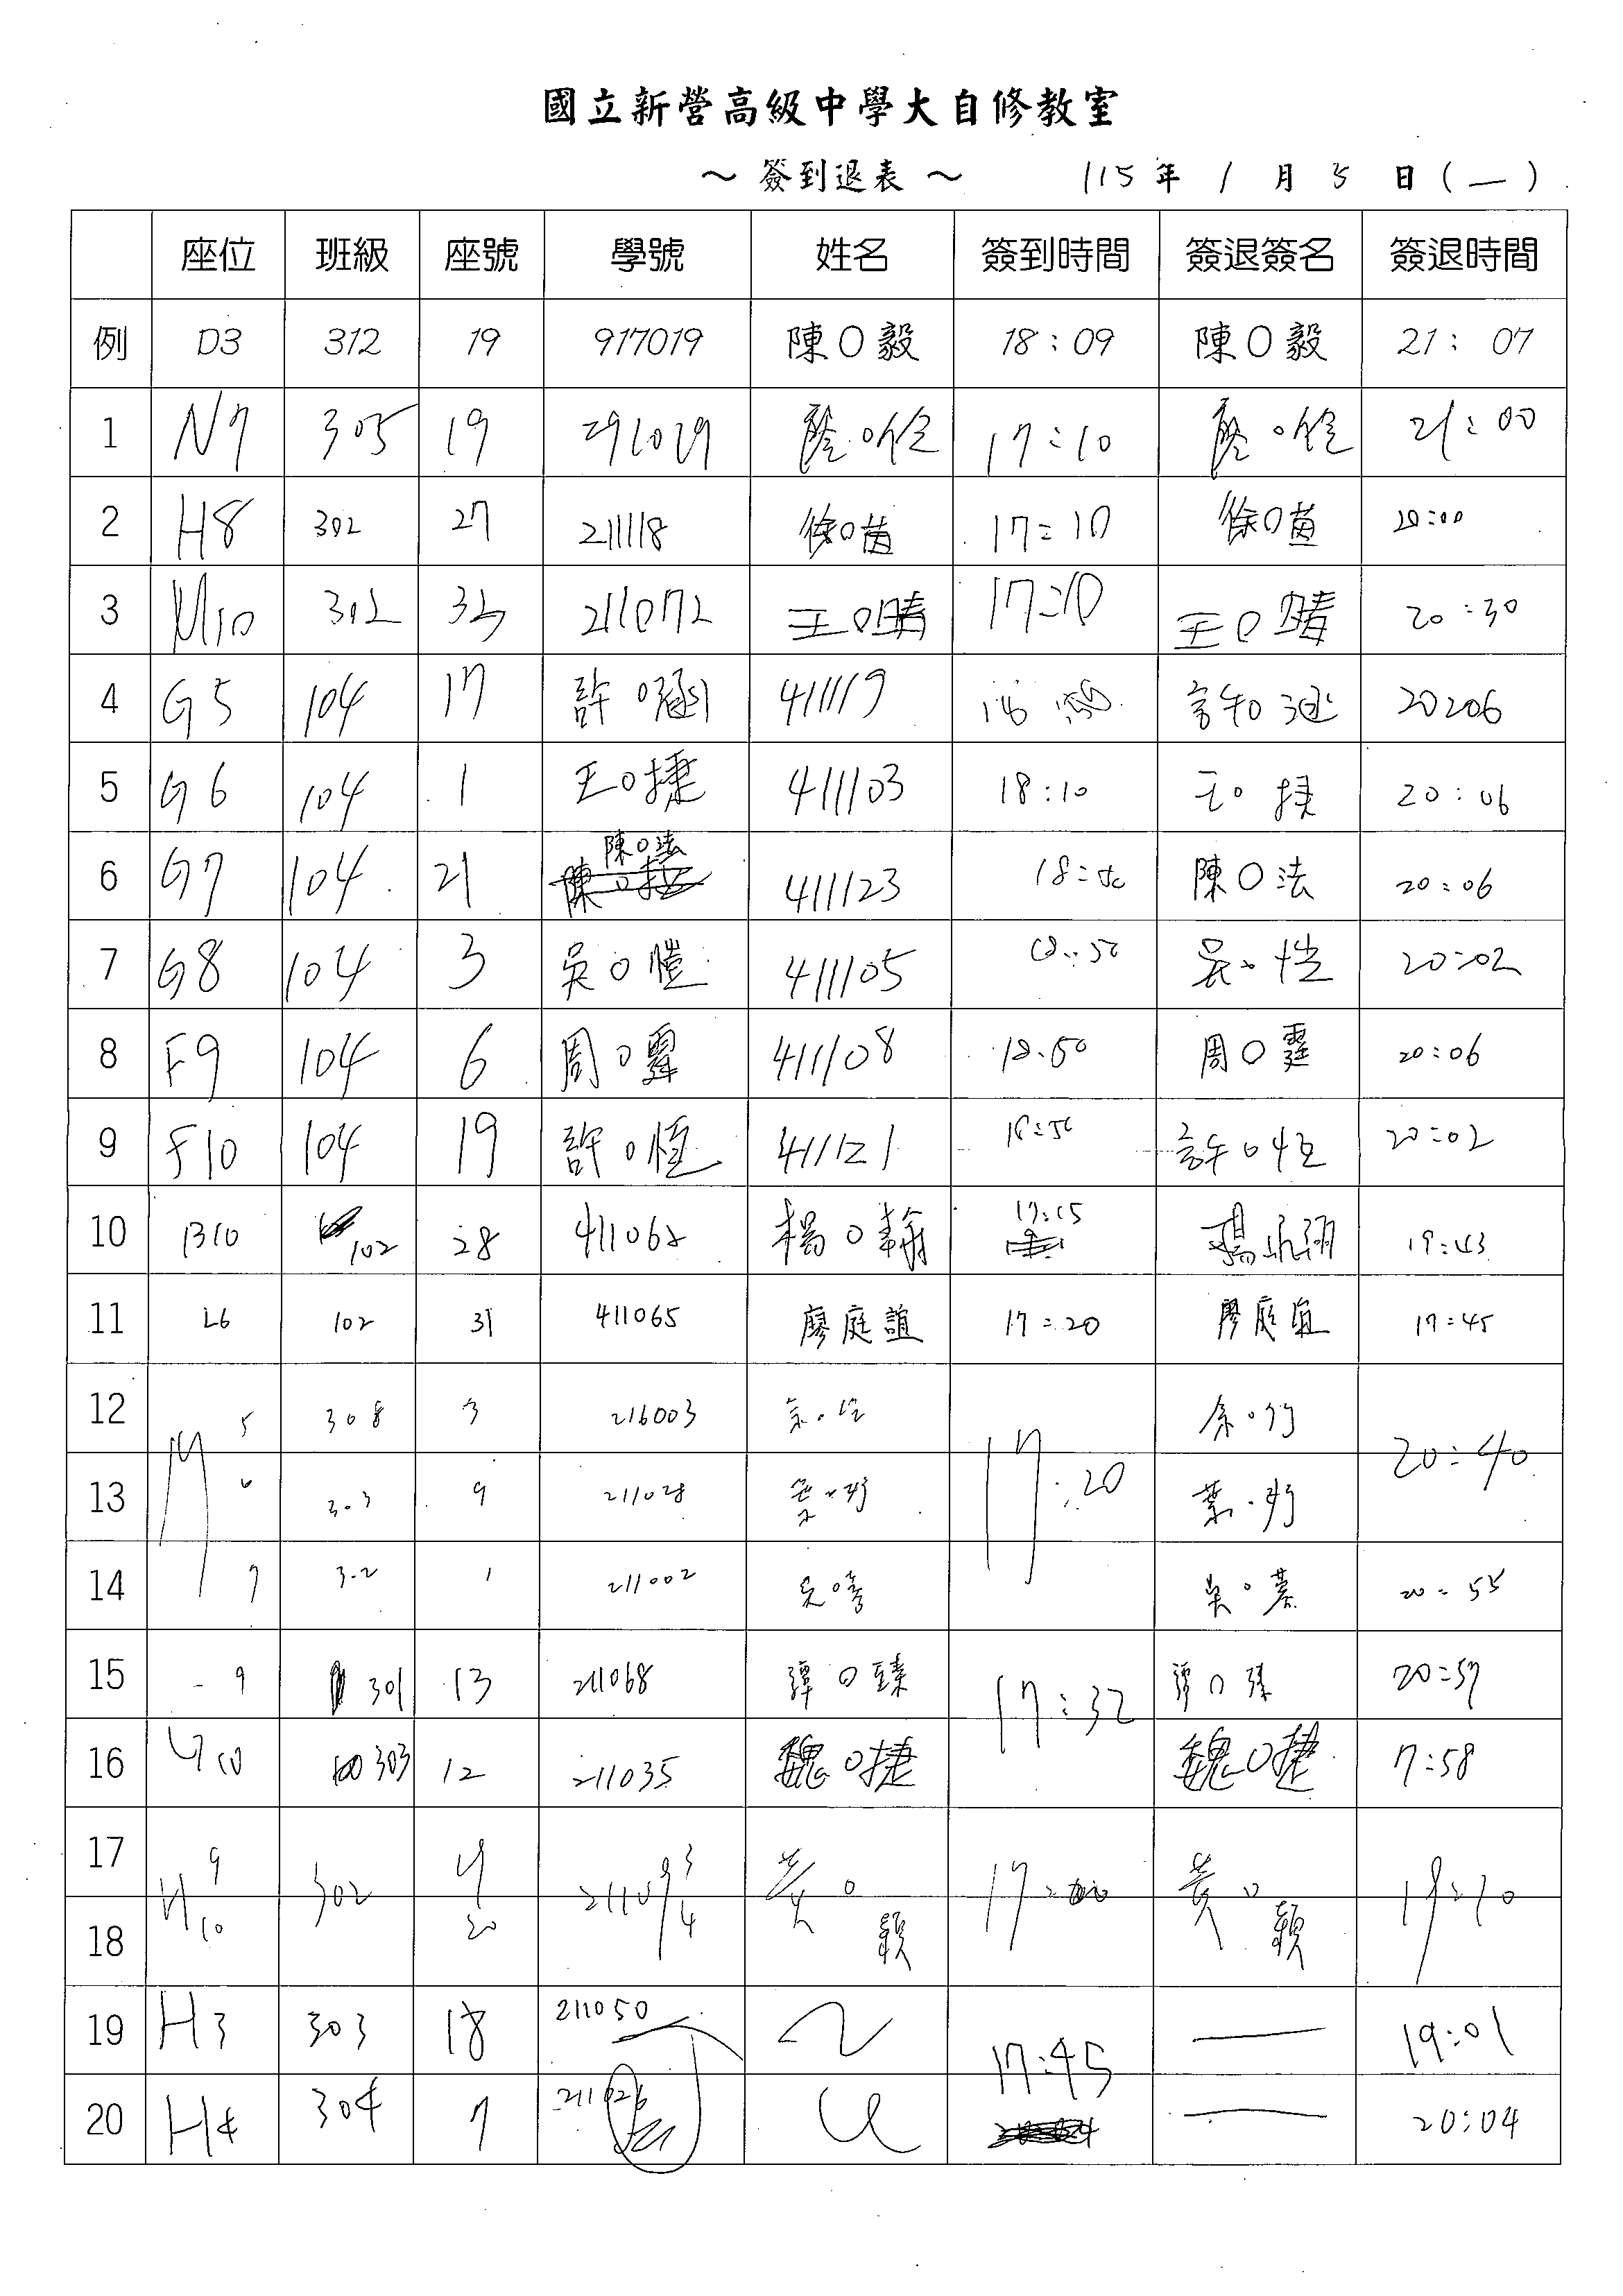 國立新營高級中學大自修教室
～ 簽到退表 ～ 115 年 1 月 5 日 (一)
座位 班級 座號 學號 姓名 簽到時間 簽退簽名 簽退時間
例 D3 312 19 917019 陳O毅 18:09 陳O毅 21:07
1 N7 305 19 17:10 21:00
2 H8 302 27 211118 徐O茵 17:10 徐O茵 20:00
3 M10 302 211072 王O晴 17:10 王O晴 20:30
4 G5 104 17 許O涵 411119 20:06
5 G6 104 1 王O捷 411103 18:10 王O捷 20:06
6 G7 104 21 陳O法 411123 陳O法 20:06
7 G8 104 3 吳O愷 411105 18:50 吳O愷 20:02
8 F9 104 6 周O霆 411108 18:50 周O霆 20:06
9 F10 104 19 許O恆 411121 18:50 許O恆 20:02
10 B10 102 28 411062 楊O翰 17:15 19:43
11 L6 102 31 411065 廖庭誼 17:20 廖庭誼 17:45
12 M 5 308 3 216003 17:20 20:40
13 6 303 9 211028 葉O妤
14 7 302 1 211002 20:55
15 9 301 13 211068 譚O臻 17:32 譚O臻 20:57
16 10 303 12 211035 魏O捷 魏O捷 7:58
17 9 302 黃O 黃O
18 10 20 穎 穎
19 H3 303 18 211050 17:45 19:01
20 H4 304 7 211026 20:04